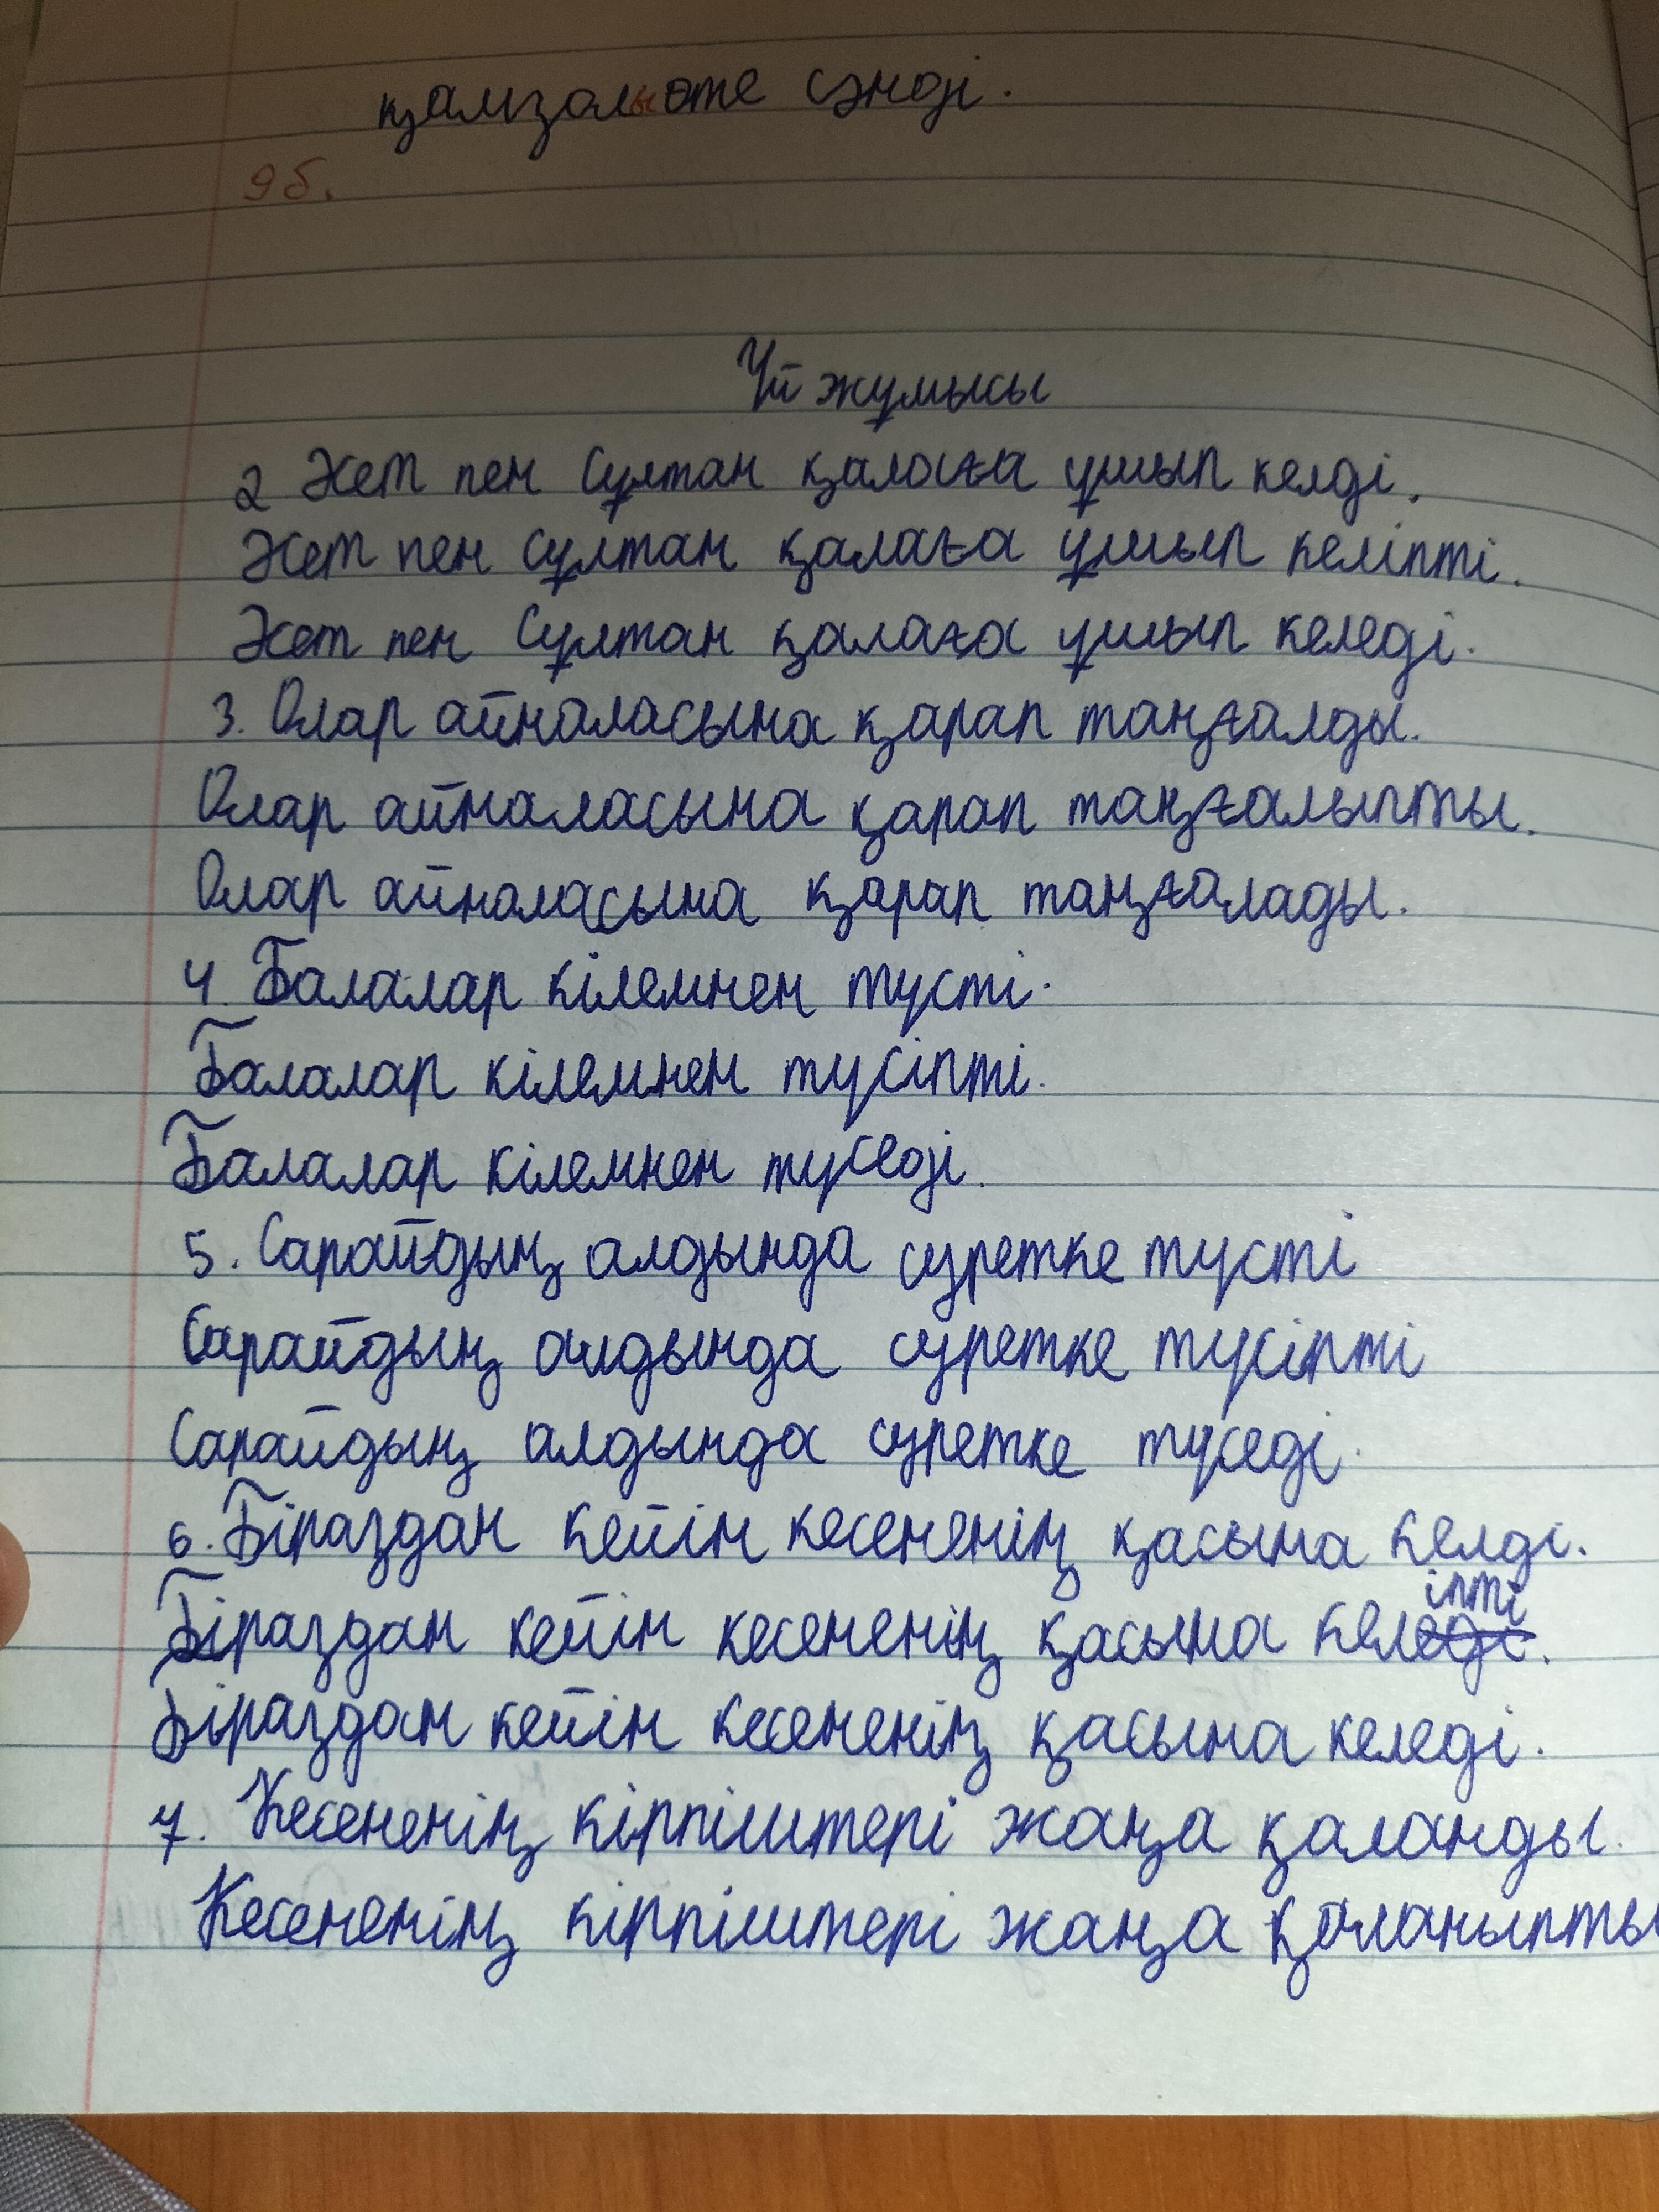 қамзолы өте сәнді.
9б.
Үй жұмысы
2 Жет пен Сұлтан қалаға ұшып келді.
Жет пен Сұлтан қалаға ұшып келіпті.
Жет пен Сұлтан қалаға ұшып келеді.
3. Олар айналасына қарап таңғалды.
Олар айналасына қарап таңғалыпты.
Олар айналасына қарап таңғалады.
4. Балалар кілемнен түсті.
Балалар кілемнен түсіпті.
Балалар кілемнен түседі.
5. Сарайдың алдында суретке түсті
Сарайдың алдында суретке түсіпті
Сарайдың алдында суретке түседі.
6. Біраздан кейін кесененің қасына келді.
Біраздан кейін кесененің қасына келіпті.
Біраздан кейін кесененің қасына келеді.
7. Кесененің кірпіштері жаңа қаланды.
Кесененің кірпіштері жаңа қаланыпты